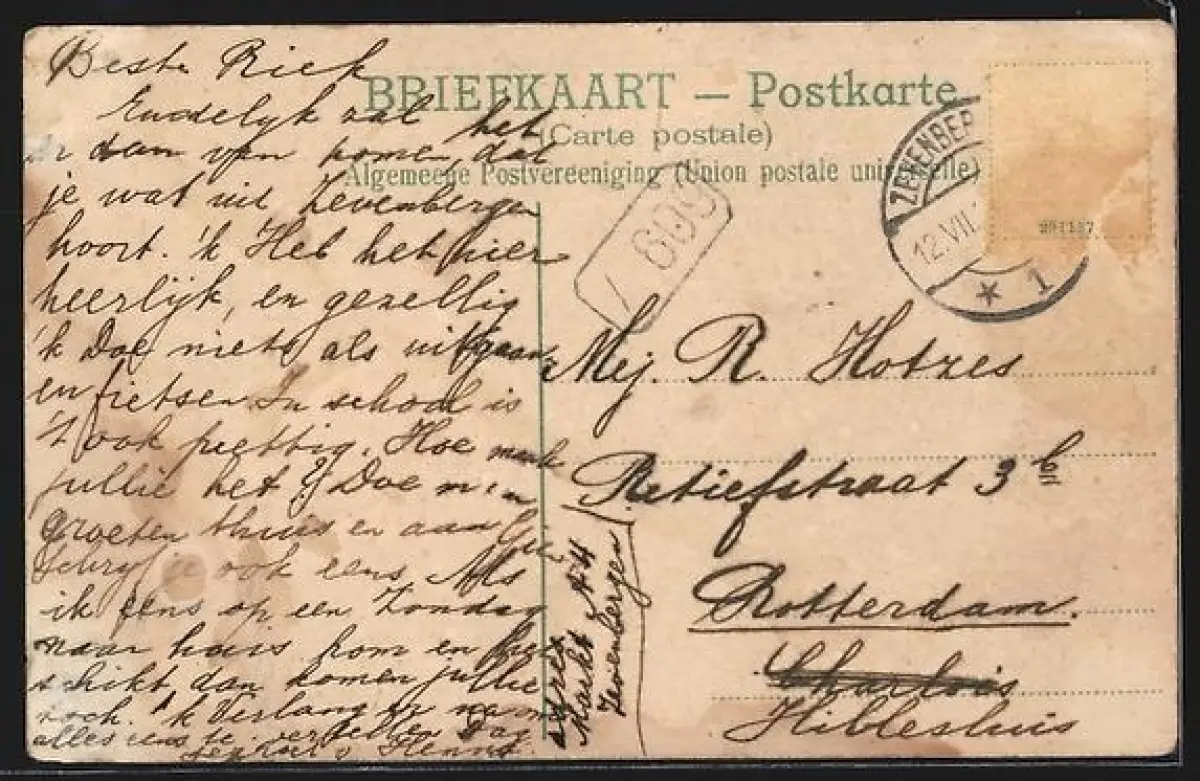 Beste Riek
Eindelyk zal het
er dan van komen, dat
je wat uit Zevenbergen
hoort. 'k Heb het hier
heerlijk, en gezellig
'k Doe niets als uitgaan
en fietsen In school is
't ook prettig. Hoe maakt
jullie het? Doe mijn
groeten thuis en aan
Schryf je ook eens. Als
ik eens op een Zondag
naar huis kom en het
schikt, dan komen jullie
toch. 'k Verlang er na om
alles eens te vertellen Dag
Henne
BRIEFKAART — Postkarte
(Carte postale)
Algemeene Postvereeniging (Union postale universelle)
609
ZEVENBER
12.VII.
1
Mej. R. Hotzes
Retiefstraat 3b
Rotterdam.
Charlois
Hillesluis
Adres
Markt A4
Zevenbergen